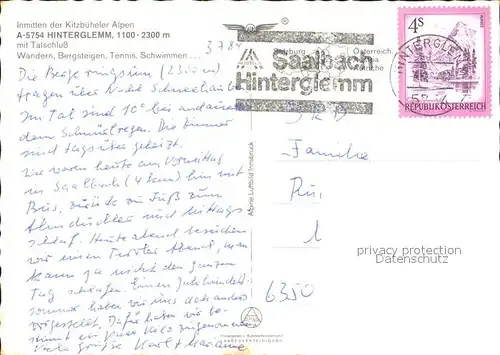 Inmitten der Kitzbüheler Alpen
A-5754 HINTERGLEMM, 1100 - 2300 m
mit Talschluß
Wandern, Bergsteigen, Tennis, Schwimmen . . .
Die Berge ringsum (2300 m)
tragen über Nacht Schneehauben.
Im Tal sind 10° bei andauern-
dem Schnürlregen. Die Zimmer
sind tagsüber geheizt.
Wir waren heute am Vormittag
in Saalbach (4 km) hin mit
Bus, zurück zu Fuß zum
und Mittags-
schlaf. Heute abend besuchen
wir einen Tiroler Abend, man
kann ja nicht den ganzen
Tag schlafen. Einen Jahrhundert-
sommer haben wir uns doch anders
vorgestellt. Dafür haben wir be-
stimmt ein Kilo zugenommen
Viele Grüße Karl + Marianne
Alpine Luftbild Innsbruck
Saalbach
Hinterglemm
Österreich
HINTERGLEMM
4S
REPUBLIK ÖSTERREICH
Familie
1
6350
privacy protection
Datenschutz